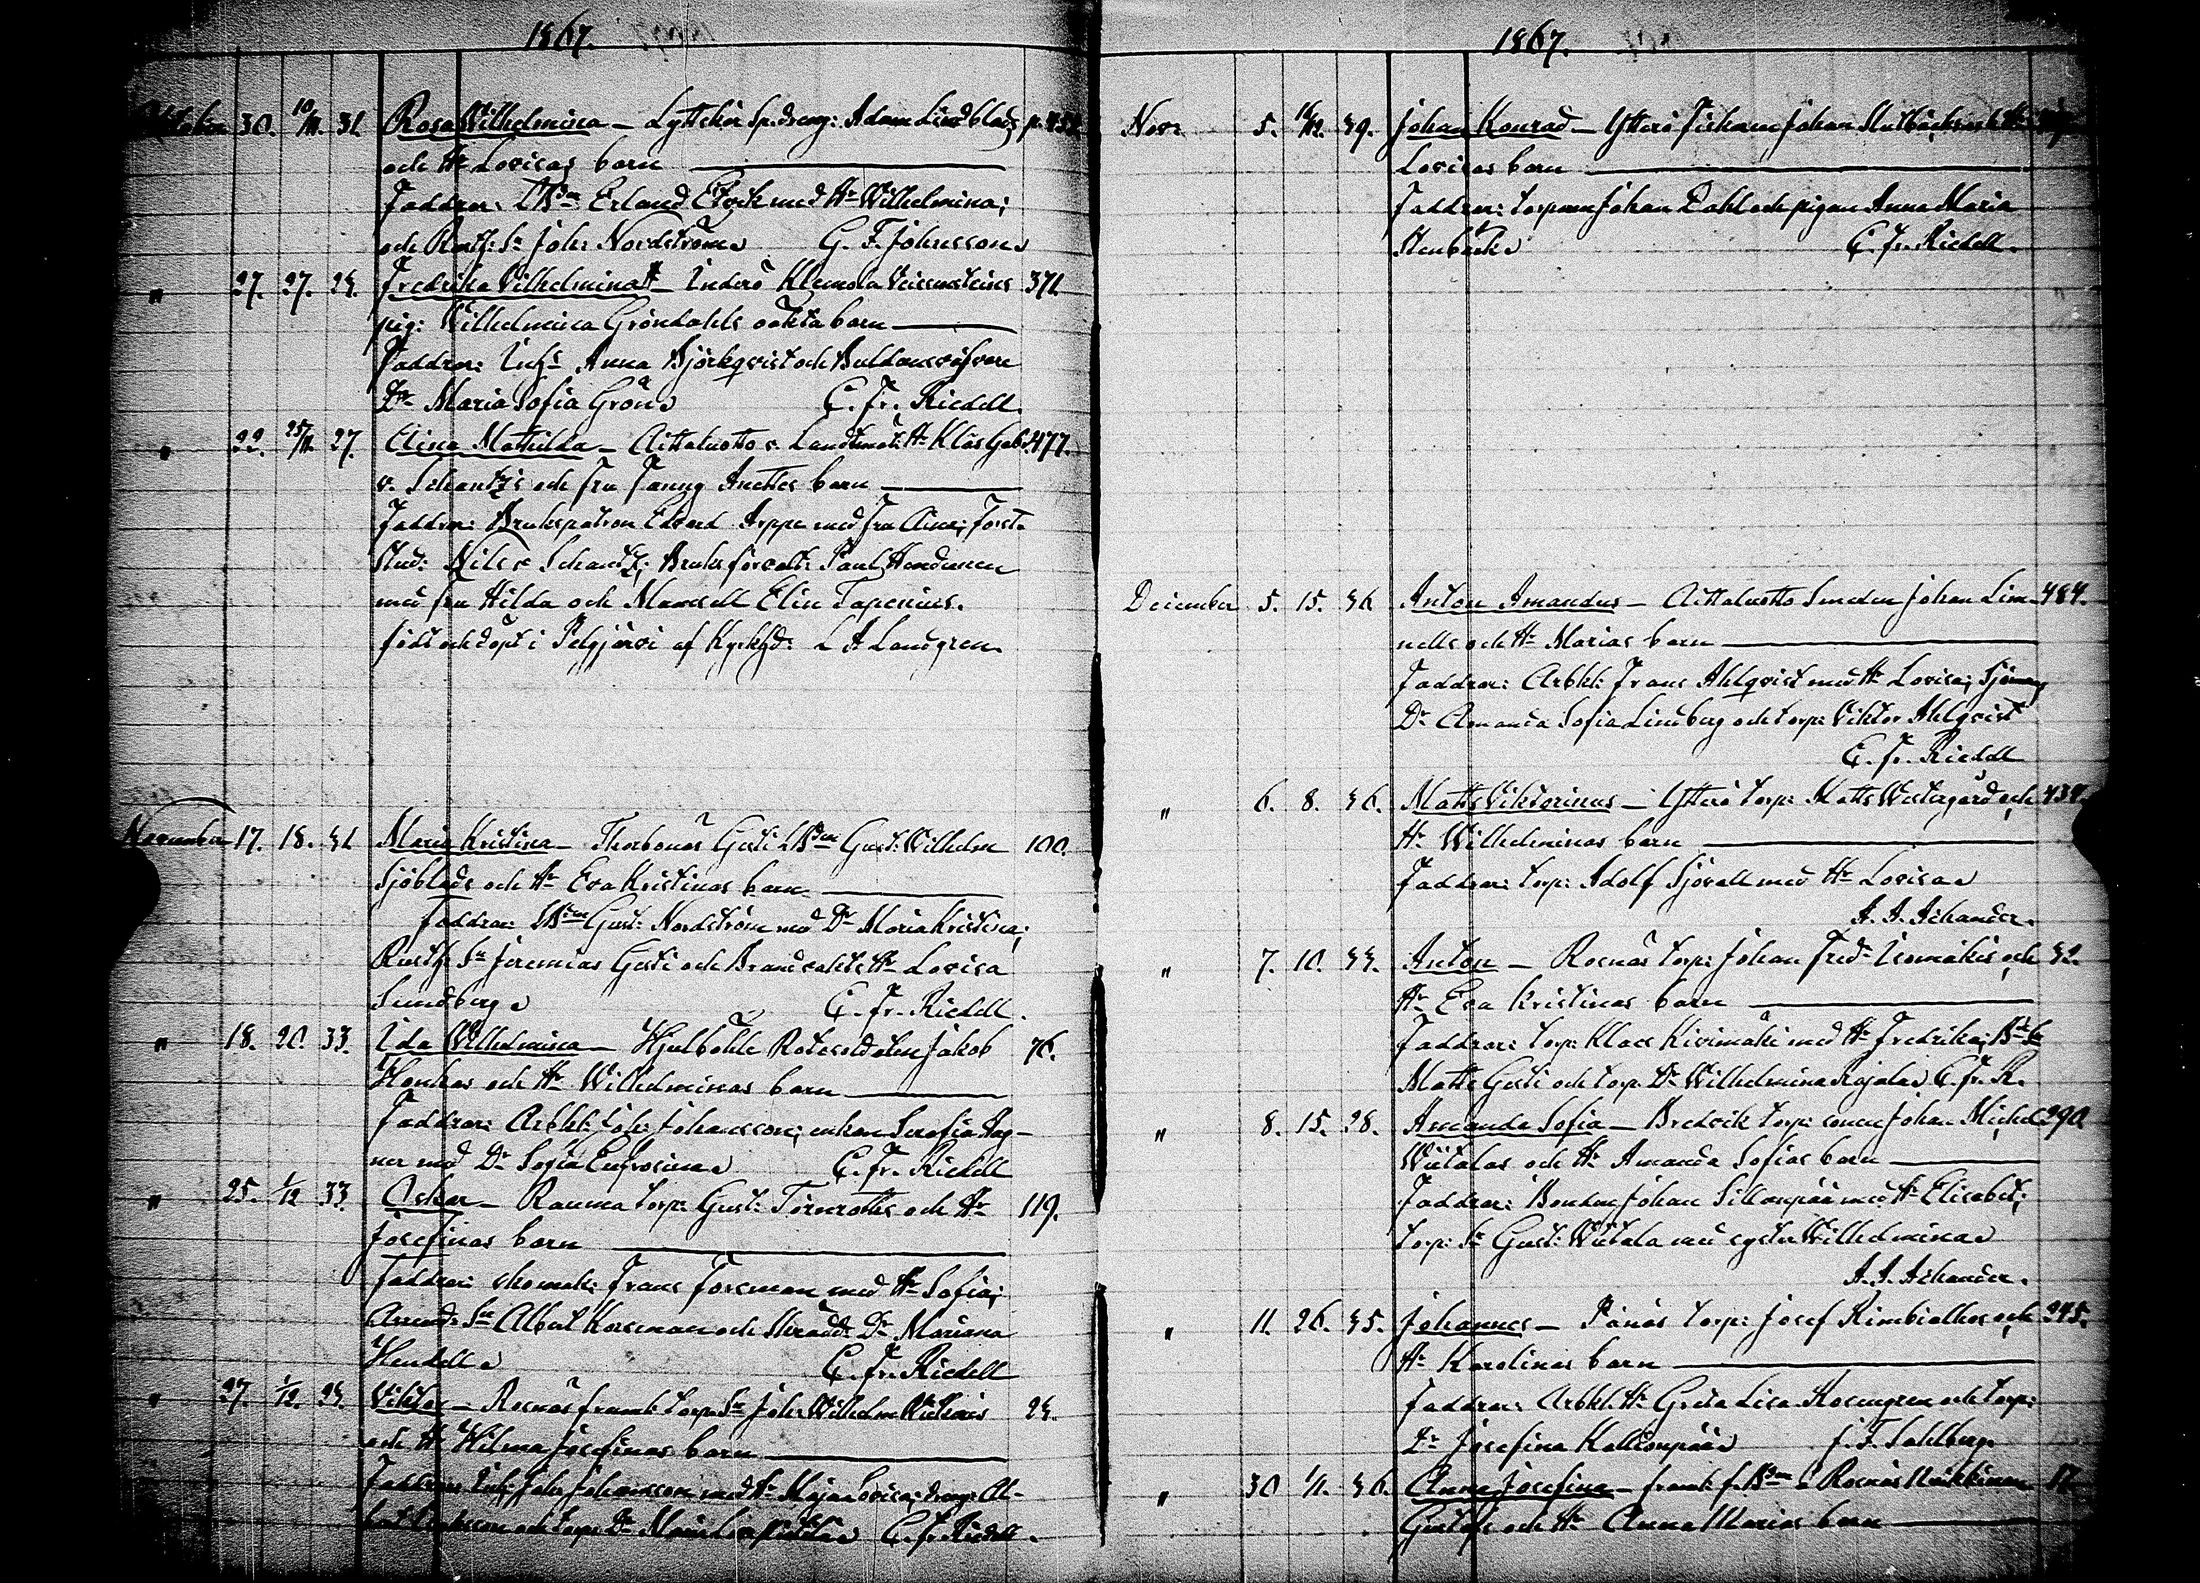 1867.
October 30. 10/11. 31. Rosa Wilhelmina — Lyttskär Sp.dreng: Adam Lindblads p.
och Hu Lovisas barn —
Faddrar: LBdn Erland Eck med Hu Wilhelmina;
och Rusth: Sn Joh: Nordström G. F. Johnsson
" 27. 27. 24. Fredrika Vilhelmina — Inderö Klemola
pig: Wilhelmina Gröndahls oäkta barn —
Faddrar: Inhs Anna Björkqvist och
Dr Maria Sofia Grön C. Fr. Riedell.
" 22. 25/11 27. Elina Mathilda — Aittaluoto v. Landtmät: Hr Klas Gabr. 477.
v. Schantz's och Fru Fanny Anettes barn —
Faddrar: Brukspatron Edvard Arppe med Fru Aina; Forst.
Stud: Nils v Schantz; Bruksförvalt: Paul
med fru Hilda och Mamsell Elin
född och döpt i Pelgjärvi af Kyrkhd: L A Landgren
November 17. 18. 31. Maria Kristina — Gust: Wilhelm 100.
Sjöblads och Hu Eva Kristinas barn —
Faddrar: LBdn Gust: Nordström med Dr Maria Kristina;
Rusth Sn Jeremias Gesti och Brandvakts Hu Lovisa
Sundberg C. Fr. Riedell.
" 18. 20. 33. Ida Vilhelmina — Hjulböhle Rotesoldaten Jakob 76.
Honkas och Hu Wilhelminas barn —
Faddrar: Arbkl: Joh: Johansson; enkan Serafia Hag-
ner med Dr Sofia Eufrosina C. Fr. Riedell
" 25. 1/12 33. Oskar — Rauma torp: Gust: Törnroths och Hu 119.
Josefinas barn —
Faddrar: skomak: Frans Forsman med Hu Sofia;
Sn Albert Korsman och Skrädd: Dr Mariana
Hendell C. Fr. Riedell
" 27. 1/12. 24. Viktor — Rosnäs framl: torp: Sn Joh: Wilhelm 24.
och Hu Wilma Josefinas barn —
Faddrar: Inh: Joh: Johansson med Hu Maja Lovisa; dreng: Al-
och torp: Dr Maria C. Fr. Riedell.
1867.
Novr 5. 39. Johan Konrad — Ytterö Johan
Lovisas barn —
Faddrar: torparen Johan Dahl och pigan Anna Maria
Stenbäck C. Fr. Riedell.
December 5. 15. 36. Anton Amandus — Aittaluoto Smeden Johan Lim- 484.
nells och Hu Marias barn —
Faddrar: Arbkl: Frans Ahlqvist med Hu Lovisa;
Dr Amanda Sofia Lindberg och torp: Viktor Ahlqvist
C. Fr. Riedell
" 6. 8. 36. Matts Viktorinus — Ytterö torp: Matts Westergård och 434.
Hu Wilhelminas barn —
Faddrar: torp: Adolf Sjövall med Hu Lovisa
A. A. Achander.
" 7. 10. 34. Anton — Rosnäs torp: Johan Fredr Isomäkis och 32.
Hu Eva Kristinas barn —
Faddrar: torp: Klaes Kivimäki med Hu Fredrika;
Matts Gesti och torp: Dr Wilhelmina Rajala C. Fr. R.
" 8. 15. 28. Amanda Sofia — Bredvik torp: sonen Johan Mickel 290.
Wiitalas och Hu Amanda Sofias barn —
Faddrar: Bonden Johan Sillanpää med Hu Elisabet;
torp: Sn Gust: Wiitala med syster Wilhelmina
A. A. Achander.
" 11. 26. 35. Johannes — Pånäs torp: Josef och 245.
Hu Karolinas barn —
Faddrar: Arbkl: Hu Greta Lisa Rosengren och torp:
Dr Josefina Kallionpää J. F. Sahlberg.
" 30 1/1. 36. Anna Josefina — framl: f. Bdn i Rosnäs 17.
Gustafs och Hu Anna Marias barn —